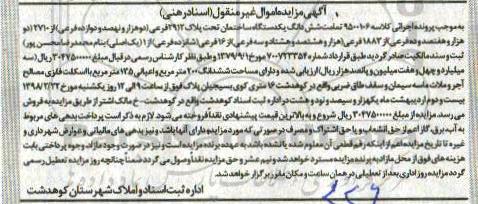 آگهی مزایده اموال غیرمنقول (اسناد رهنی)
به موجب پرونده اجرائی کلاسه ۹۵۰۰۱۰۶ تمامت شش دانگ یکدستگاه ساختمان تحت پلاک ۲۹۱۲ فرعی (دو هزار و نهصد و دوازده فرعی) از ۲۷۱۰ (دو
هزار و هفتصد و ده فرعی) از ۱۸۸۳ فرعی (هزار و هشتصد و هشتاد و سه فرعی) از ۱۶ فرعی (شانزده فرعی) از ۱ (یک اصلی) بنام محمدرضا محسن پور)
ثبت و سند مالکیت صادر گردید طبق قرارداد شماره ۷۰۰۷۲۳۳۵۴-۱۳۷۹/۹/۱ و طبق نظر کارشناس رسمی در قبال مبلغ ۳۰۴۷۵۰۰۰۰۰ ریال (سه
میلیارد و چهل و هفت میلیون و پانصد هزار ریال) ارزیابی شده و دارای مساحت ششدانگ ۲۰۰ متر مربع و اعیانی ۱۲۵ متر مربع با اسکلت فلزی مصالح
آجر و ملات ماسه سیمان و سقف طاق ضربی واقع در کوهدشت ۱۶ متری کوی بسیجیان پلاک فوق از ساعت ۹ الی ۱۲ روز یکشنبه مورخ ۱۳۹۸/۲/۲۲
بیست و دوم اردیبهشت ماه یکهزار و سیصد و نود و هشت در اداره ثبت اسناد کوهدشت واقع در کوهدشت - خ مالک اشتر از طریق مزایده به فروش
می رسد. مزایده از مبلغ ۳۰۴۷۵۰۰۰۰۰ ریال شروع و به بالاترین قیمت پیشنهادی نقداً فروخته می شود. لازم به ذکر است پرداخت بدهی های مربوط
به آب، برق، گاز اعم از حق انشعاب و یا حق اشتراک و مصرف در صورتی که مورد مزایده دارای آنها باشد و نیز بدهی های مالیاتی و عوارض شهرداری و
غیره تا تاریخ مزایده اعم از اینکه رقم قطعی آن معلوم شده یا نشده باشد به عهده برنده مزایده است و نیز در صورت وجود مازاد وجوه پرداختی بابت
هزینه های فوق از محل مازاد به برنده مزایده مسترد خواهد شد و نیم عشر و حق مزایده نقداً وصول می گردد ضمناً چنانچه روز مزایده تعطیل رسمی
گردد مزایده روز اداری بعد از تعطیلی در همان ساعت و مکان مقرر برگزار خواهد شد.
اداره ثبت اسناد و املاک شهرستان کوهدشت